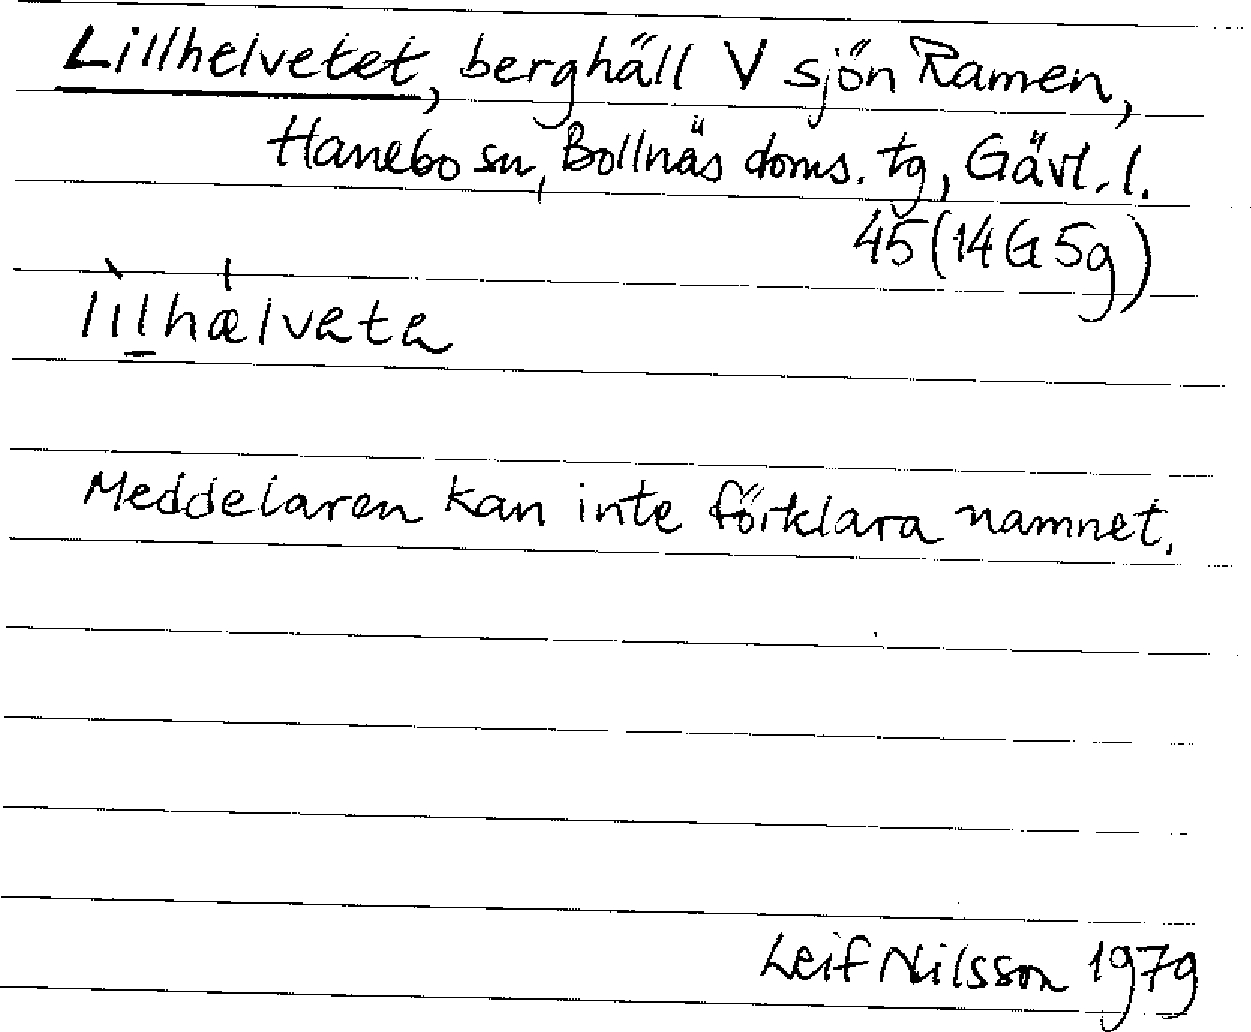 Lillhelvetet, berghäll V sjön Ramen,
Hanebo sn, Bollnäs doms. tg, Gävl. l.
45 (14G 5g)
lìl̲hǽlvete
Meddelaren kan inte förklara namnet.
Leif Nilsson 1979